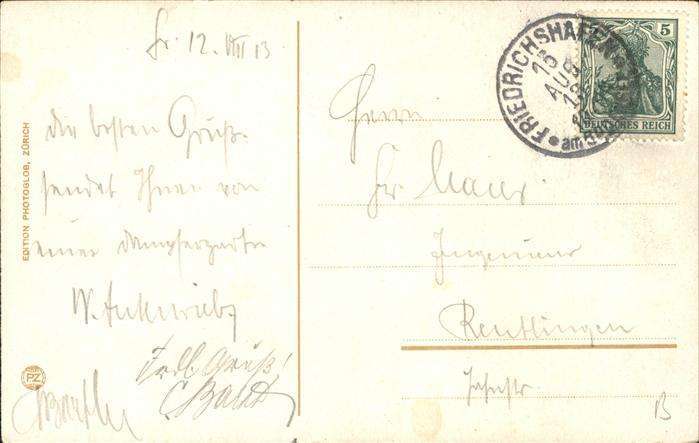 Fr. 12. VIII 13
die besten Grüße
sendet Ihnen von
einer Dampferpartie
W.
Frdl. Grüß!
EDITION PHOTOGLOB, ZÜRICH
PZ
FRIEDRICHSHAFEN
13
AUG
am
5
DEUTSCHES REICH
Herrn
Fr. Maier
Ingenieur
Reutlingen
B